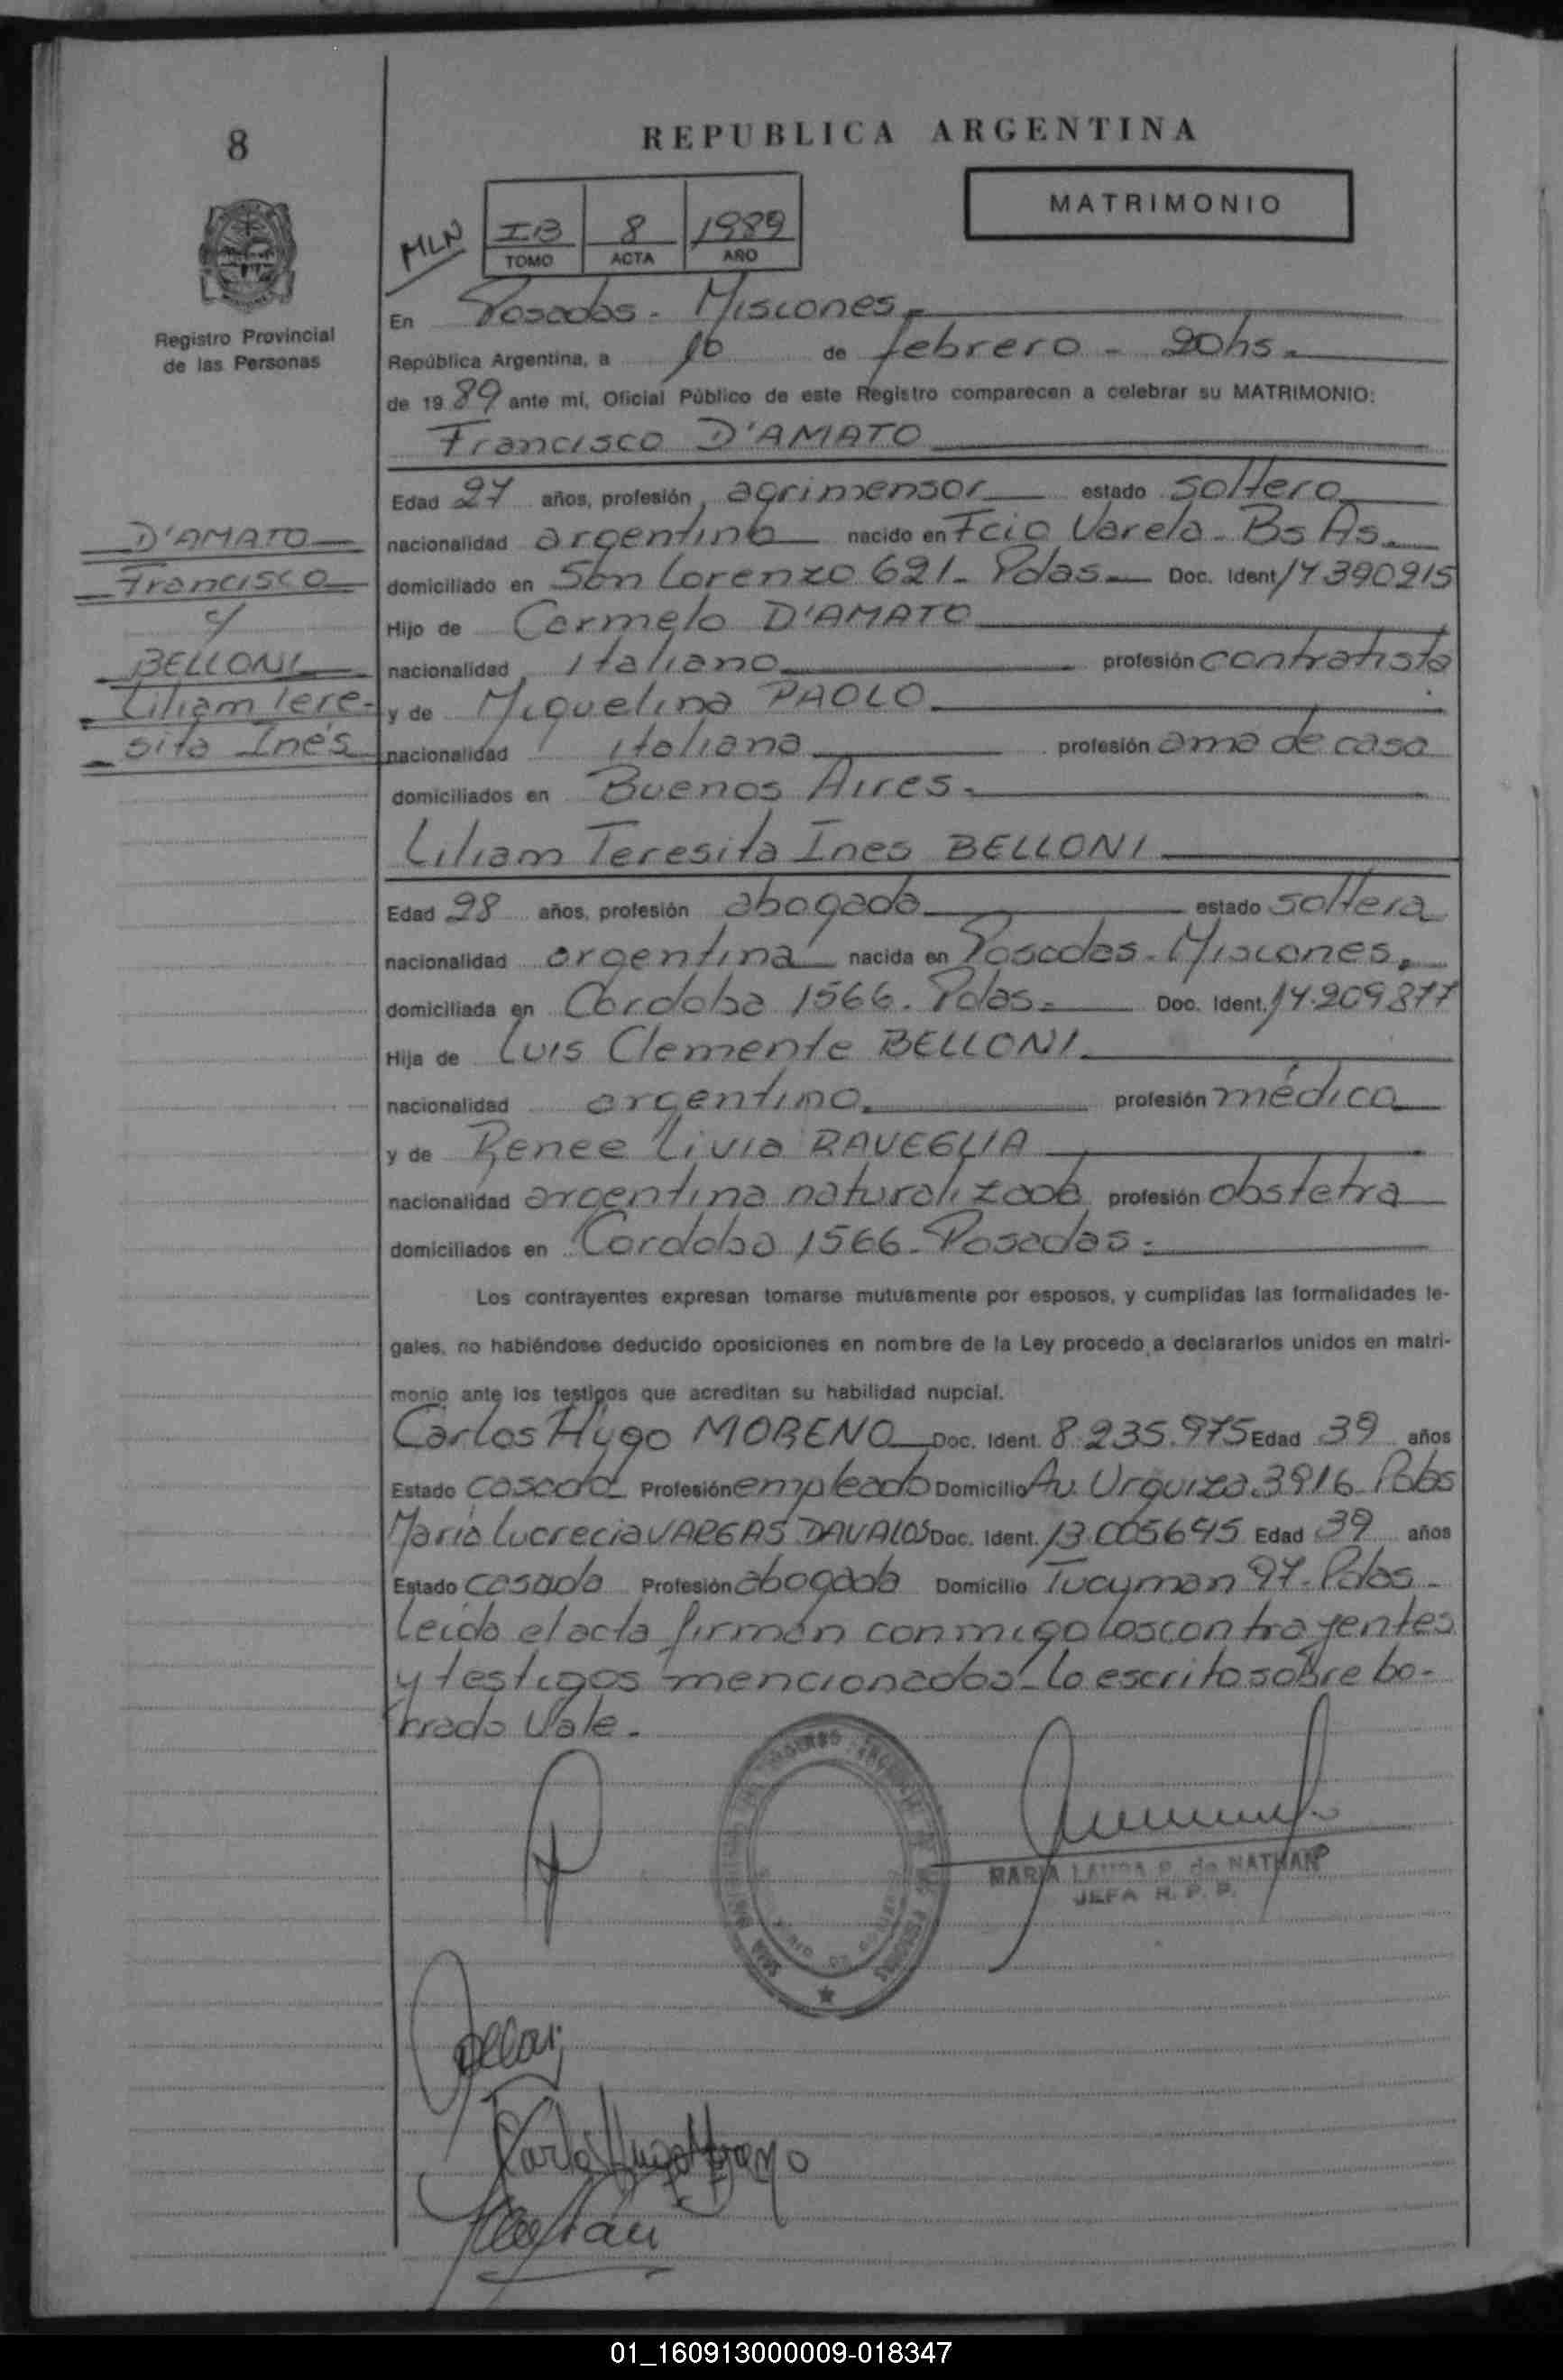 8
REPUBLICA ARGENTINA
MATRIMONIO
MLN
IB 8 1989
TOMO ACTA AÑO
Registro Provincial
de las Personas
En Posadas - Misiones
República Argentina, a 10 de febrero - 20hs.
de 1989 ante mí, Oficial Público de este Registro comparecen a celebrar su MATRIMONIO:
Francisco D'AMATO
Edad 27 años, profesión agrimensor estado soltero
nacionalidad argentina nacido en Fcio Varela - Bs As.
domiciliado en San Lorenzo 621 - Pdas. Doc. Ident 14390215
Hijo de Carmelo D'AMATO
nacionalidad italiano profesión contratista
y de Miquelina PAOLO
nacionalidad italiana profesión ama de casa
domiciliados en Buenos Aires.
D'AMATO
Francisco
c/
BELLONI
Liliam Tere-
sita Inés
Liliam Teresita Ines BELLONI
Edad 28 años, profesión abogada estado soltera
nacionalidad argentina nacida en Posadas - Misiones.
domiciliada en Cordoba 1566. Pdas. Doc. Ident. 14.209877
Hija de Luis Clemente BELLONI
nacionalidad argentino. profesión médico
y de Renee Livia RAVEGLIA
nacionalidad argentina naturalizada profesión obstetra
domiciliados en Cordoba 1566 - Posadas.
Los contrayentes expresan tomarse mutuamente por esposos, y cumplidas las formalidades le-
gales, no habiéndose deducido oposiciones en nombre de la Ley procedo a declararlos unidos en matri-
monio ante los testigos que acreditan su habilidad nupcial.
Carlos Hugo MORENO Doc. Ident. 8.235.975 Edad 39 años
Estado casado Profesión empleado Domicilio Av. Urquiza 3916 - Pdas
Maria Lucrecia VARGAS DAVALOS Doc. Ident. 13.005645 Edad 39 años
Estado casada Profesión abogada Domicilio Tucuman 97 - Pdas -
Leida el acta firman conmigo los contrayentes
y testigos mencionados - Lo escrito sobre bo-
rrado Vale.
MARIA LAURA P. de NATHAN
JEFA R. P. P.
Carlos Hugo Moreno
01_160913000009-018347